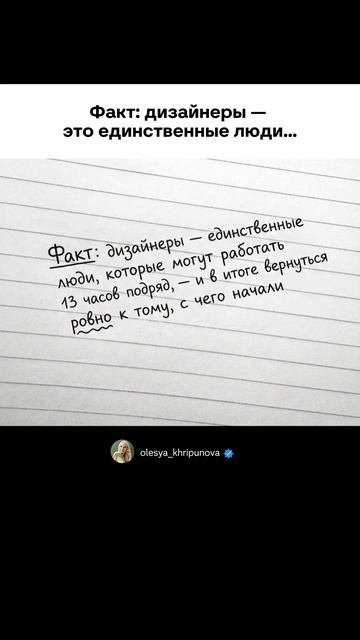 Факт: дизайнеры —
это единственные люди...
Факт: дизайнеры — единственные
люди, которые могут работать
13 часов подряд, — и в итоге вернуться
ровно к тому, с чего начали
olesya_khripunova